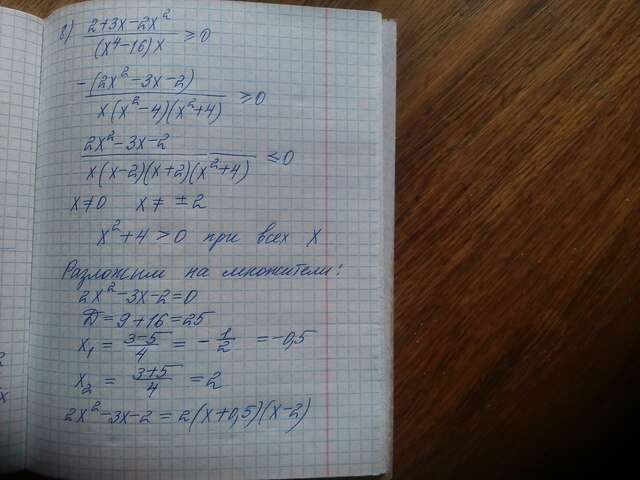 в) (2+3x-2x²)/((x⁴-16)x) ≥ 0
-(2x²-3x-2)/(x(x²-4)(x²+4)) ≥ 0
(2x²-3x-2)/(x(x-2)(x+2)(x²+4)) ≤ 0
x≠0 x≠ ±2
x²+4>0 при всех x
Разложим на множители:
2x²-3x-2=0
Д=9+16=25
x₁ = (3-5)/4 = -1/2 = -0,5
x₂ = (3+5)/4 = 2
2x²-3x-2 = 2(x+0,5)(x-2)